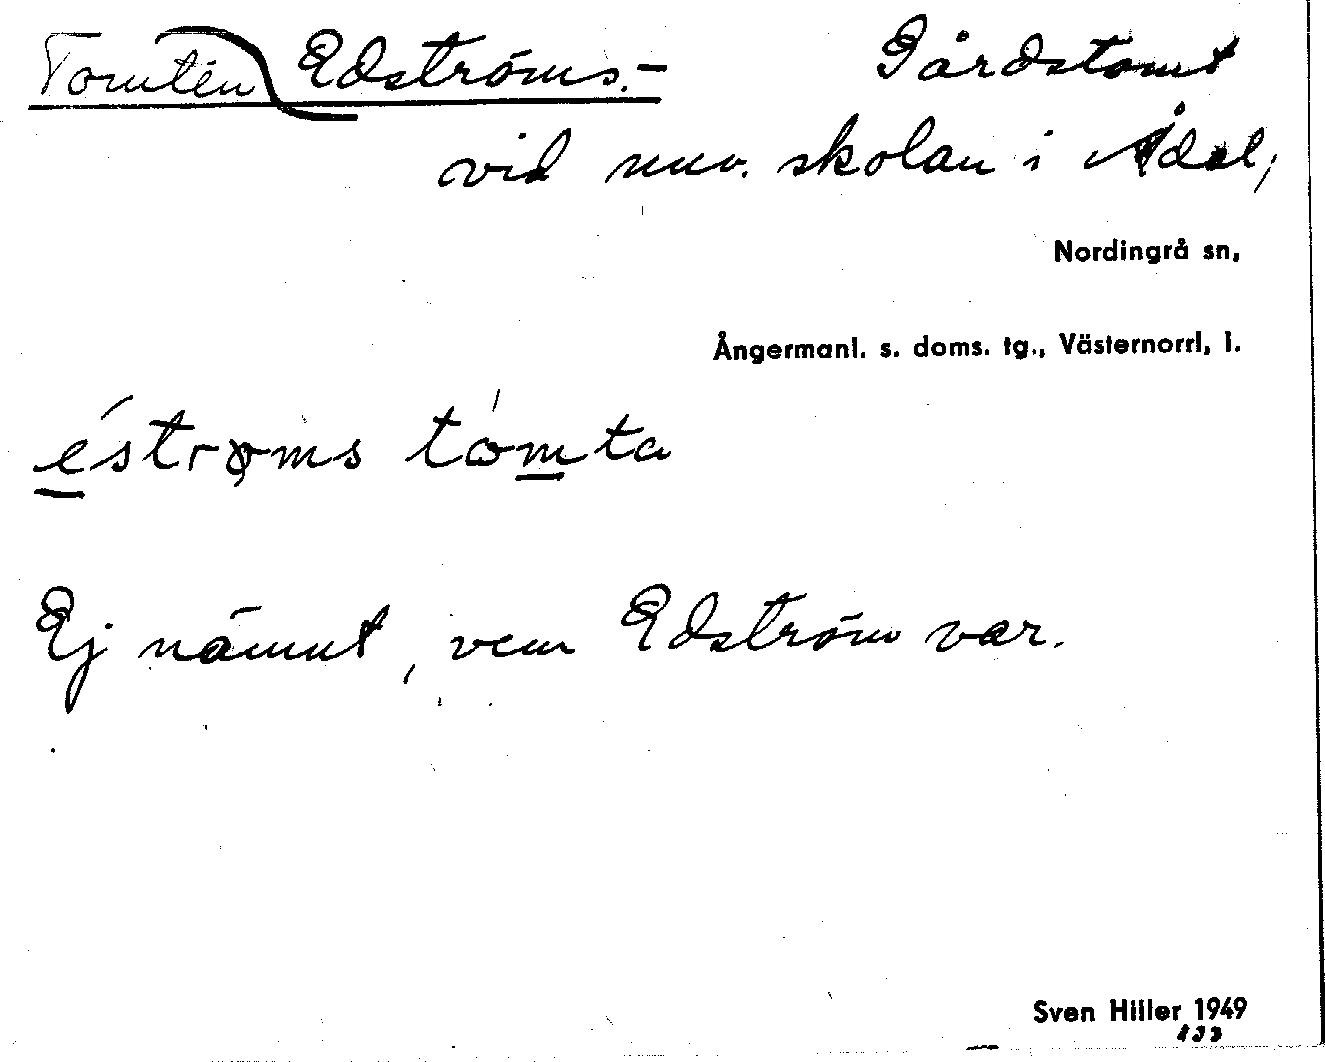 Tomten Edströms.- Gårdstomt
vid nuv. skolan i Ådal,
Nordingrå sn,
Ångermanl. s. doms. tg., Västernorrl. l.
éstrøms tómta
Ej nämnt, vem Edström var.
Sven Hiller 1949